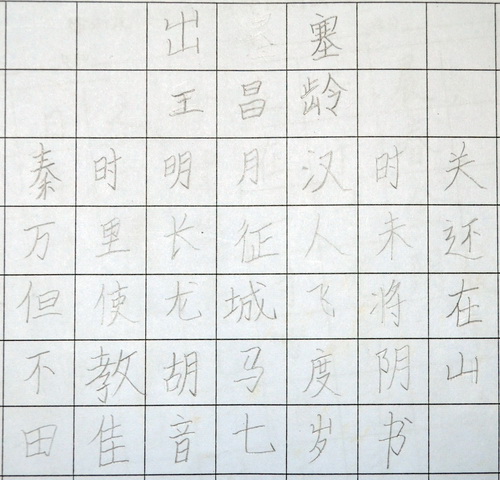 出塞
王昌龄
秦时明月汉时关
万里长征人未还
但使龙城飞将在
不教胡马度阴山
田佳音七岁书